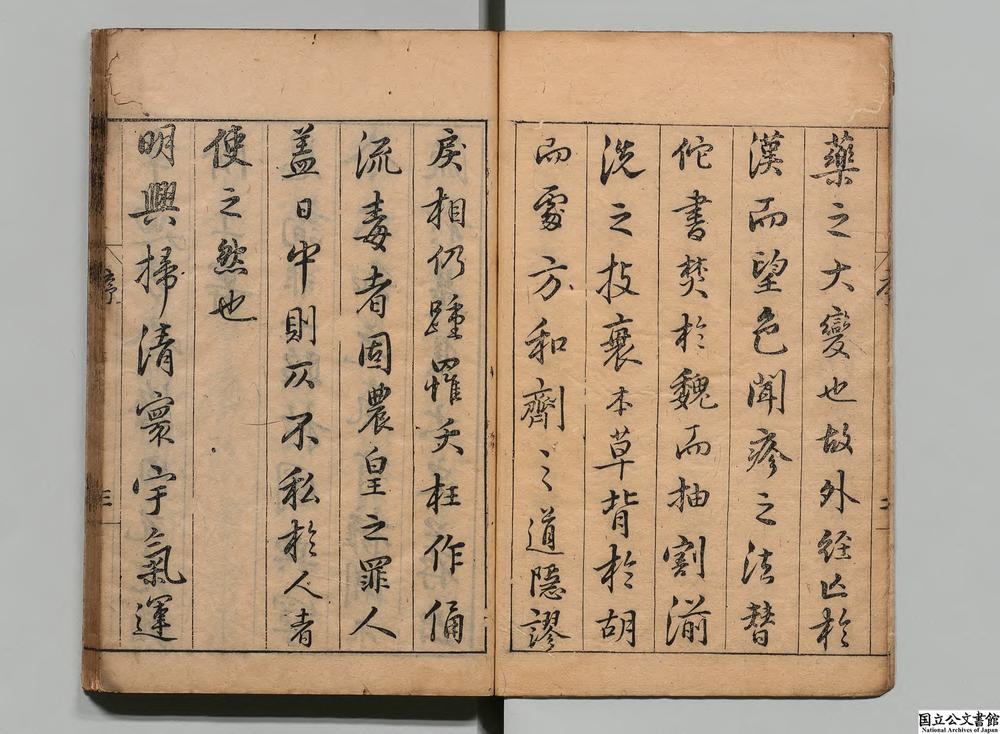 藥之大變也故外経亾於
漢而望色聞疹之法替
佗書焚於魏而抽割湔
洗之技衰本草背於胡
而處方和劑之道隱謬
戾相仍踵罹夭枉作俑
流毒者固農皇之罪人
盖日中則仄不私於人者
使之然也
明興掃清寰宇氣運
序
三
国立公文書館
National Archives of Japan